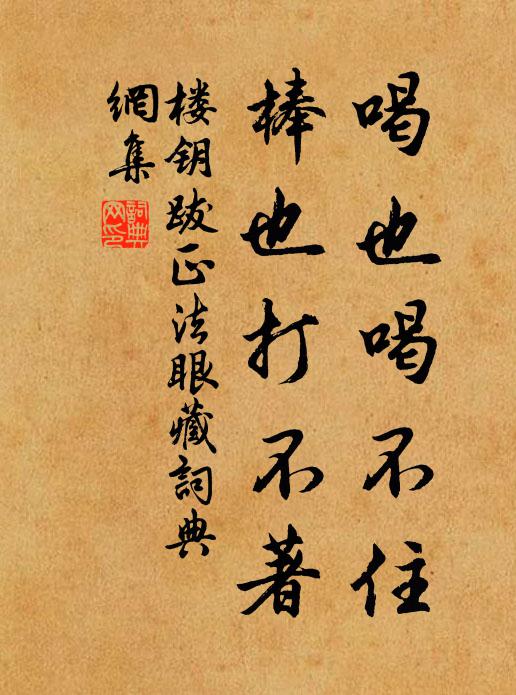 喝也喝不住
棒也打不著
楼钥跋正法眼藏詞典
網集
詞典
网印